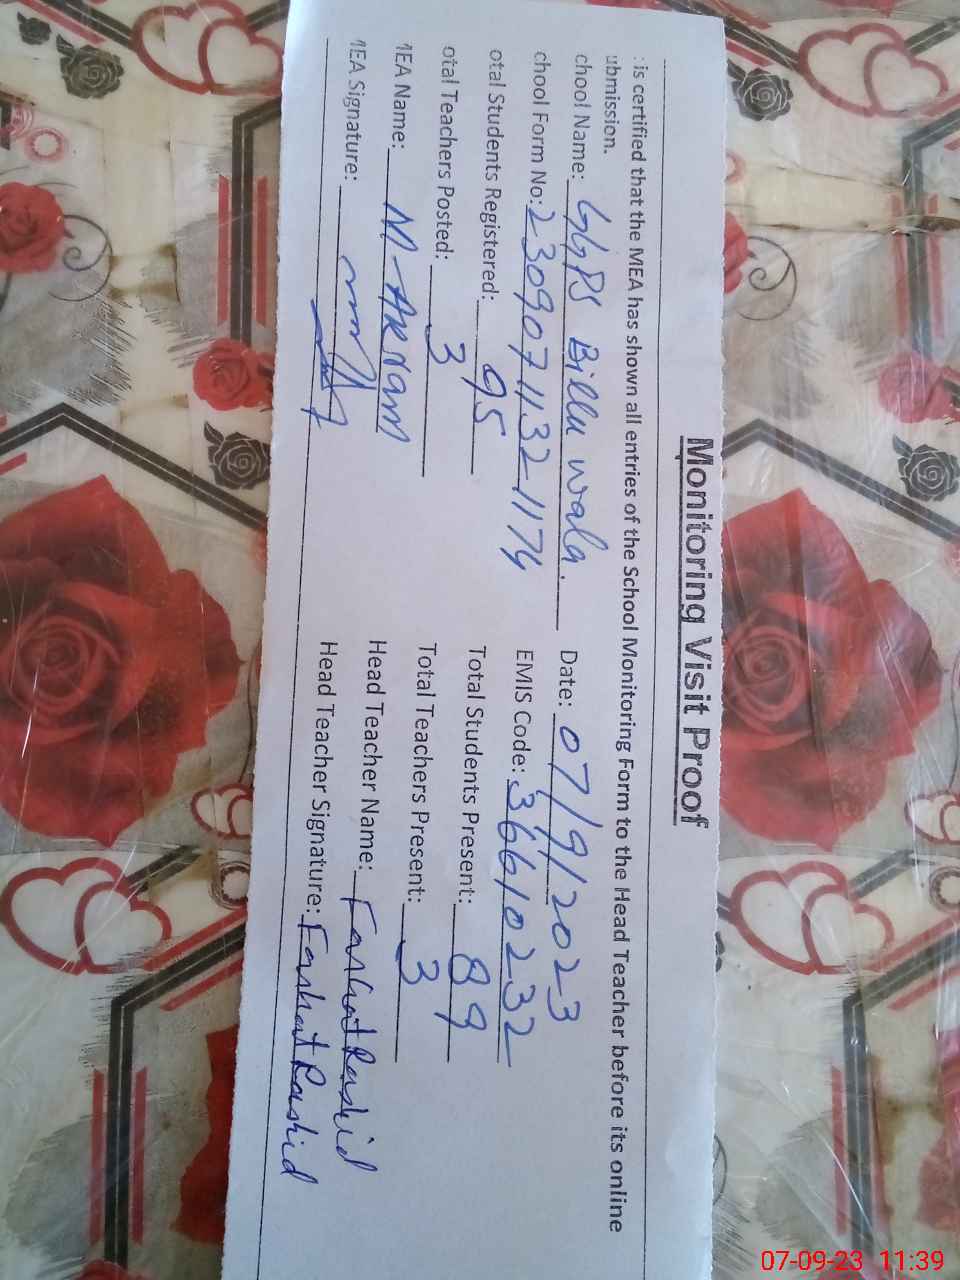 Monitoring Visit Proof
: is certified that the MEA has shown all entries of the School Monitoring Form to the Head Teacher before its online
ubmission.
chool Name: GGPS Billu wala. Date: 07/9/2023
chool Form No: 23090711321174 EMIS Code: 36610232
otal Students Registered: 95 Total Students Present: 89
otal Teachers Posted: 3 Total Teachers Present: 3
MEA Name: M-AKram Head Teacher Name: Farhat Rashid
MEA Signature: Head Teacher Signature: Farhat Rashid
07-09-23 11:39